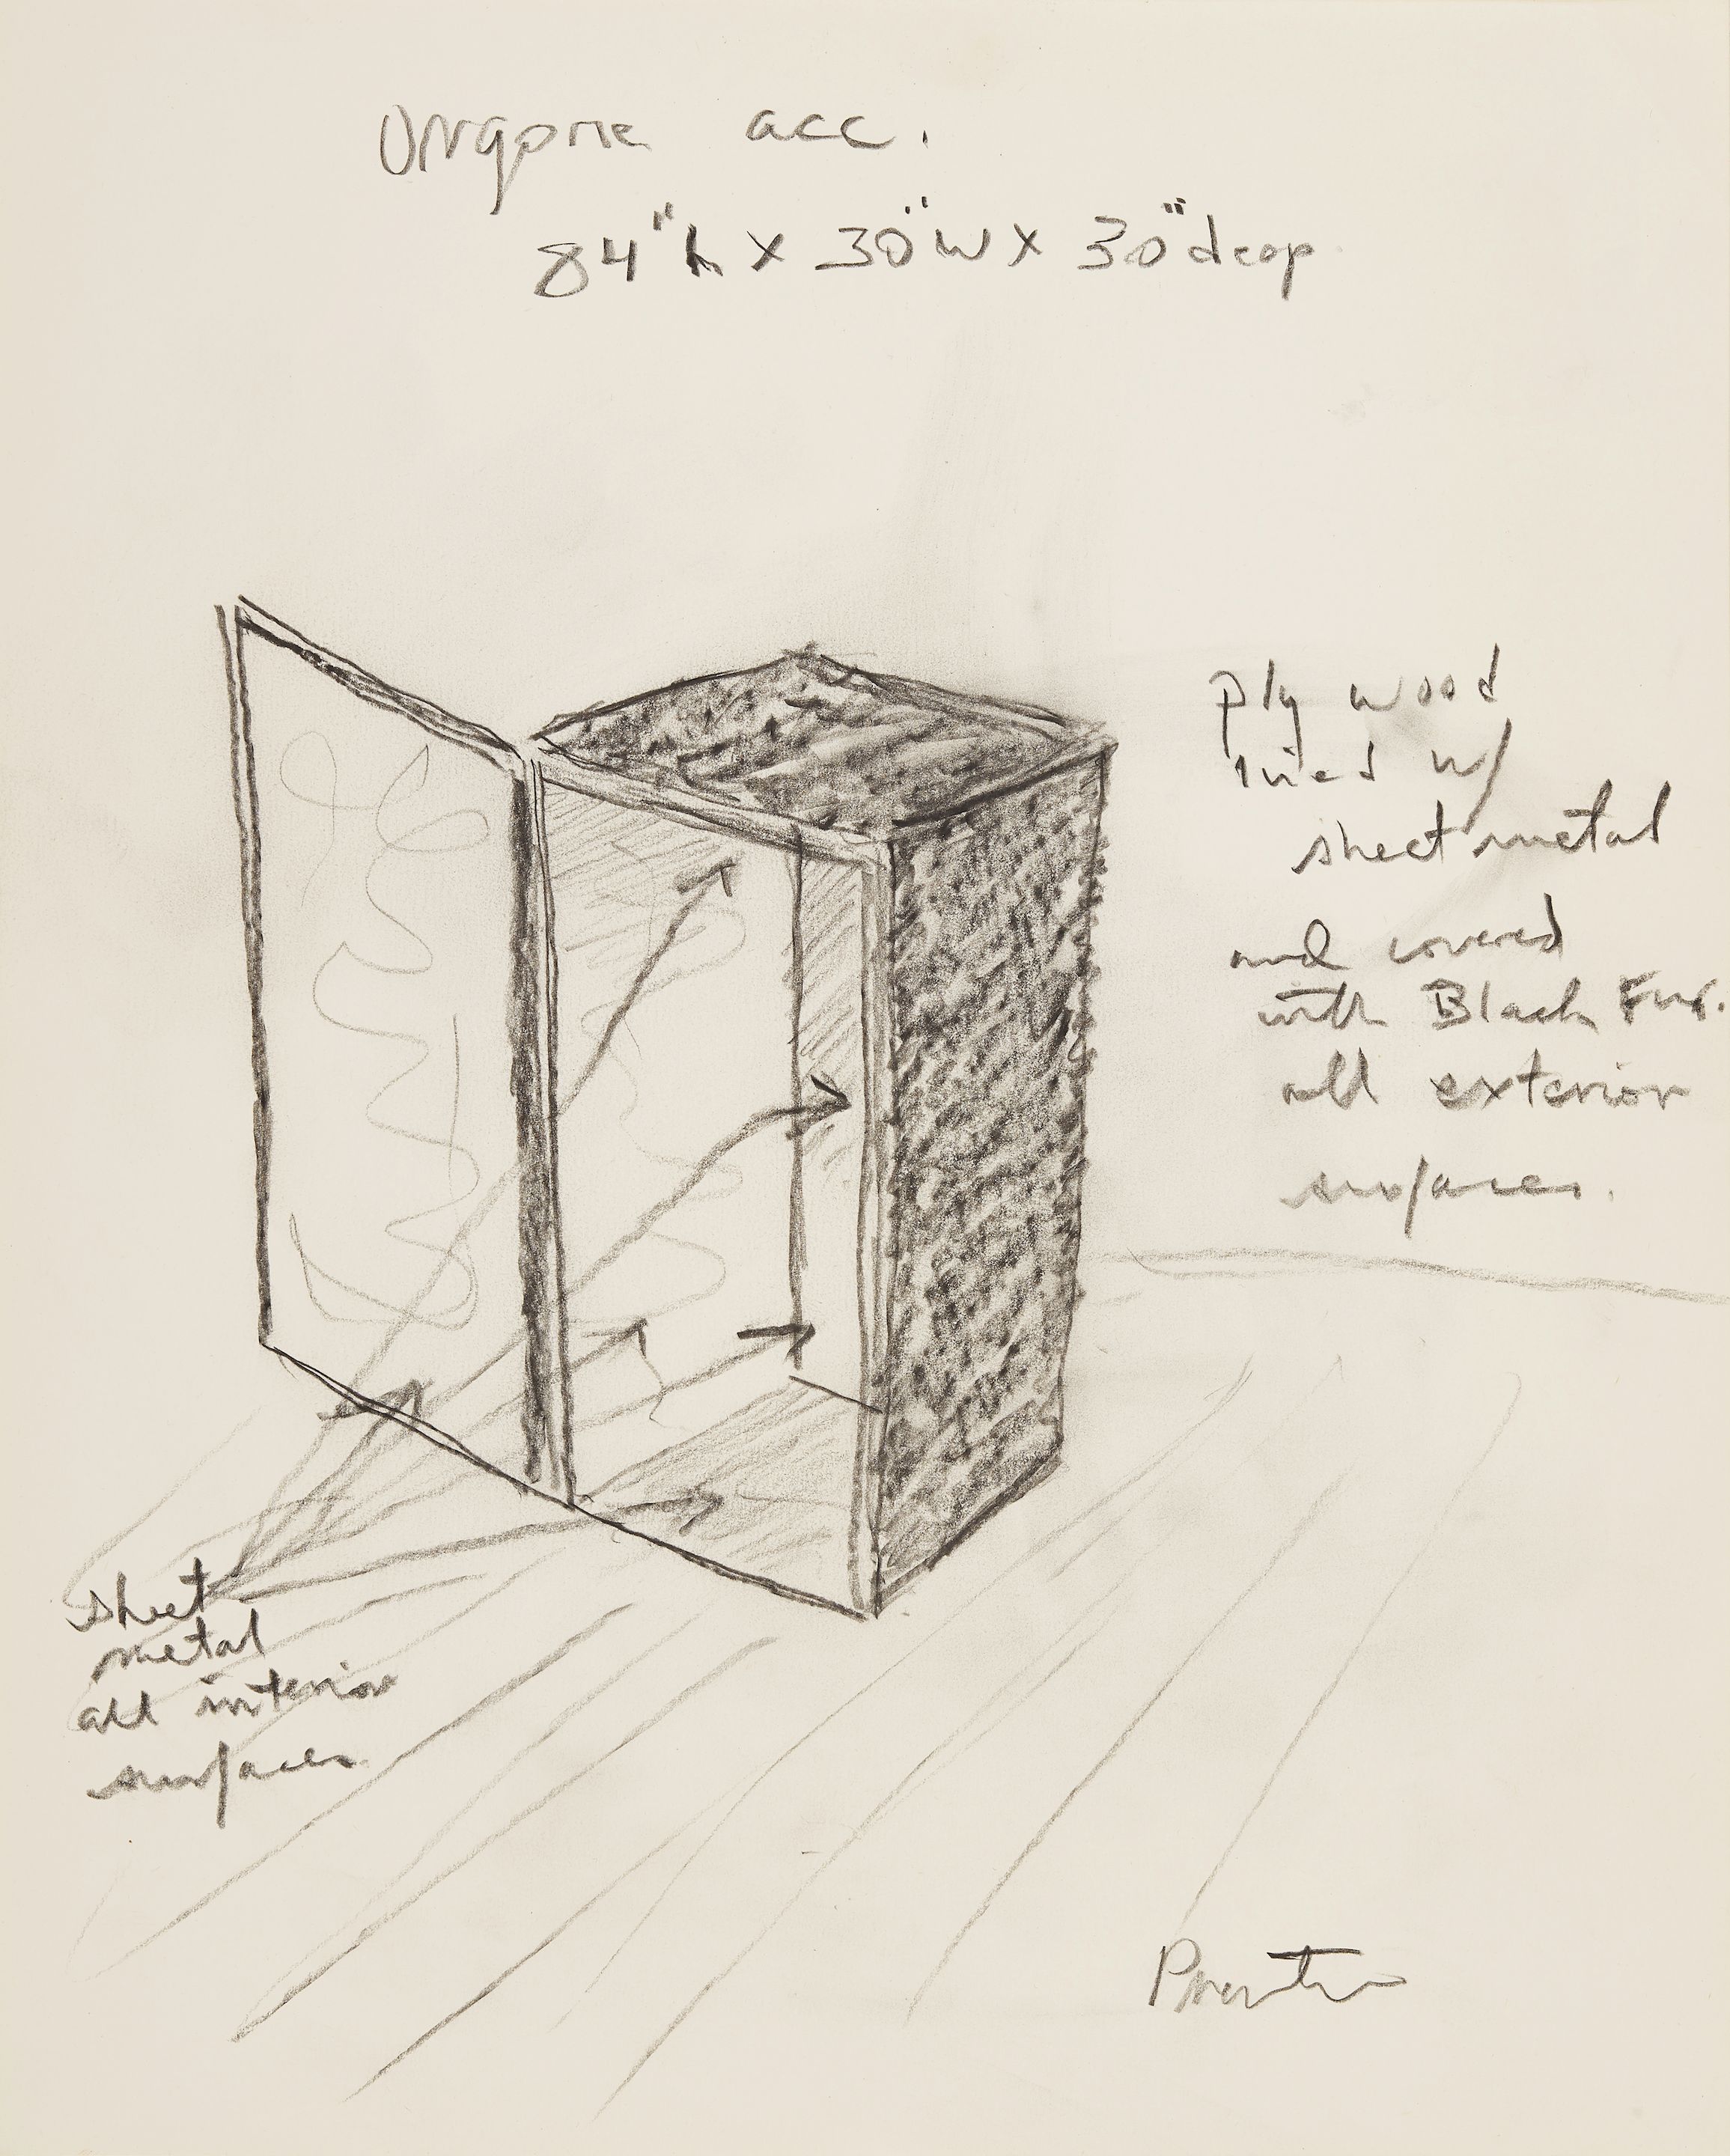 Orgone acc.
84"h x 30"w x 30" deep
ply wood
lined w/
sheet metal
and covered
with Black Fur.
all exterior
surfaces.
sheet
metal
all interior
surfaces